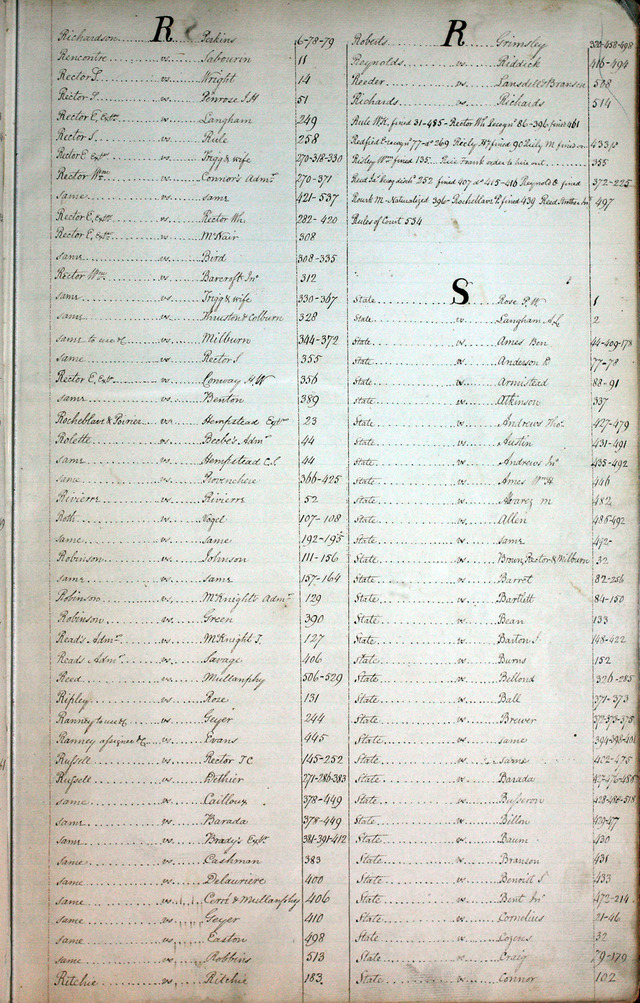 R
Richardson vs. Perkins 6-78-79
Rencontre vs. Sabourin 11
Rector T. vs. Wright 14
Rector S. vs. Penrose J H 51
Rector E, Extr. vs. Langham 249
Rector S. vs. Rule 258
Rector E Extr. vs. Trigg & wife 270-318-330
Rector Wm. vs. Connor's Admr. 270-371
same vs. same 421-537
Rector E. Extr. vs. Rector Wh. 282-420
Rector E. Extr. vs. McNair 308
same vs. Bird 308-335
Rector Wm. vs. Barcroft Jnr 312
same vs. Trigg & wife 330-367
same vs. Thruston & Colburn 328
same to use &c vs. Milburn 344-372
same vs. Rector S 355
Rector E, Extr. vs. Conway H.W 356
same vs. Benton 389
Rocheblave & Poirier vs. Hempstead Extr. 23
Rolette vs. Beebe's Admr. 44
same vs. Hempstead C.S. 44
same vs. Provenchere 366-425
Riviere vs. Riviere 52
Roth vs. Vogel 107-108
same vs. same 192-195
Robinson vs. Johnson 111-156
same vs. same 157-164
Robinson vs. McKnight's Admr. 129
Robinson vs. Green 390
Read's Admr. vs. McKnight T. 127
Read's Admr. vs. Savage 406
Reed vs. Mullanphy 506-529
Ripley vs. Rose 131
Ranney to use &c vs. Geyer 244
Ranney assignee &c vs. Evans 445
Russell vs. Rector T C 145-252
Russell vs. Dethier 271-286-383
same vs. Cailloux 378-449
same vs. Barada 378-449
same vs. Brady's Extr. 381-391-412
same vs. Cashman 383
same vs. Delauriere 400
same vs. Cerré & Mullanphy 406
same vs. Geyer 410
same vs. Easton 498
same vs. Robbins 513
Ritchie vs. Ritchie 183
R
Roberts vs. Grimsley 320-458-498
Reynolds vs. Riddick 416-494
Reeder vs. Lansdell & Branson 508
Richards vs. Richards 514
Rule W.K. fined 31-485- Rector Wh. Recogn. 86-396 fined 461
Redfield recogn. 77- 269 Reely fined 90 Reily M. fined 433
Risley Wm fined 135 Rice Frank order to hire out 355
Reed 252 fined 407 415-416 Reynolds fined 372-225
Rourk M. Naturalized 396- Rocheblave P. fined 439 Reed 497
Rules of Court 534
S
State vs. Rose P. W 1
State vs. Langham A L 2
State vs. Ames Ben 44-409-178
State vs. Anderson P 77-78
State vs. Armistead 88-91
State vs. Atkinson 337
State vs. Andrews Thos. 427-479
State vs. Austin 431-491
State vs. Andrews Jnr. 435-492
State vs. Ames Wm H. 446
State vs. Alvarez m 482
State vs. Allen 485-492
State vs. same 492-
State vs. Brown, Rector & Milburn 32
State vs. Barrot 82-256
State vs. Bartlett 84-150
State vs. Bean 133
State vs. Barton J. 148-422
State vs. Burns 152
State vs. Billond 326-285
State vs. Ball 371-373
State vs. Brewer 372-373-375
State vs. same 394-398-401
State vs. same 402-475
State vs. Barada 427-476-485
State vs. Busseron 428-486-518
State vs. Billon 429-477
State vs. Baum 430
State vs. Branson 431
State vs. Benoist S 433
State vs. Bent Jnr. 472-214
State vs. Cornelius 21-46
State vs. Cozens 32
State vs. Craig 79-179
State vs. Connor 102